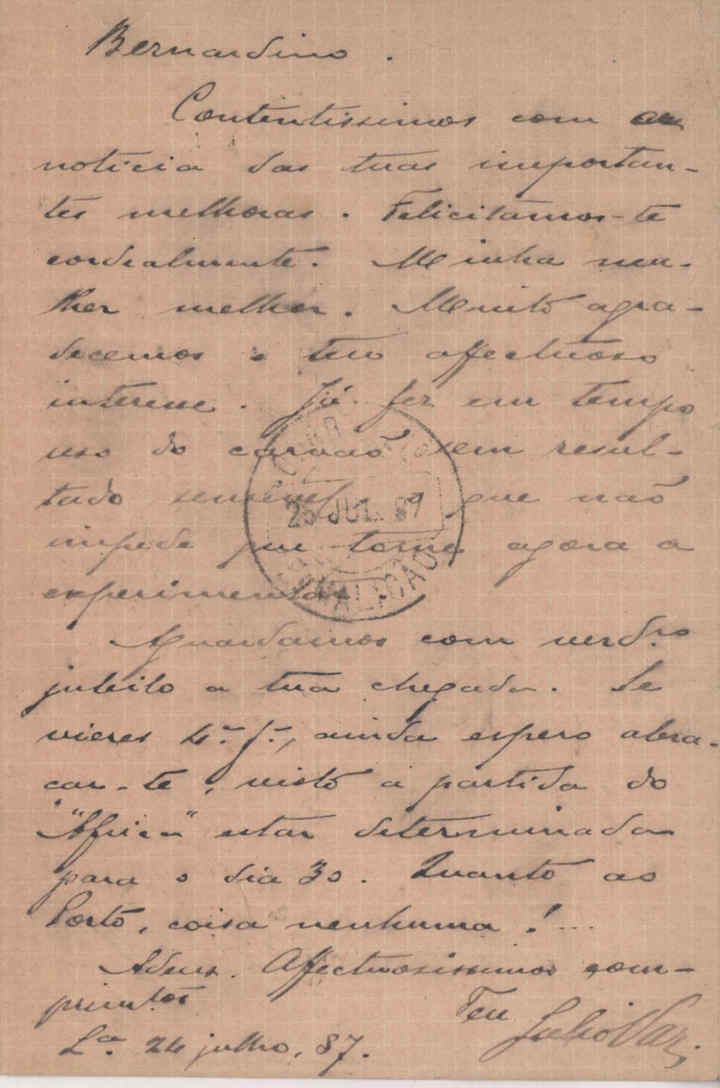 Bernardino.
Contentissimos com a
noticia das tuas importan-
tes melhoras. Felicitamos-te
cordealmente. Minha mu-
lher melhor. Muito agra-
decemos o teu affectuoso
interesse. Já fez em tempo
uso do carvão sem resul-
tado sensivel, o que não
impede que torne agora a
experimentar.
Aguardamos com verd.ro
jubilo a tua chegada. Se
vieres 4.ª f.ª, ainda espero abra-
çar-te, visto a partida do
"Africa" estar determinada
para o dia 30. Quanto ao
Porto, coisa nenhuma!...
Adeus. Affectuosissimos com-
primtos
Teu Julio Vaz.
L.ª 24 julho, 87.
25 JUL. 87